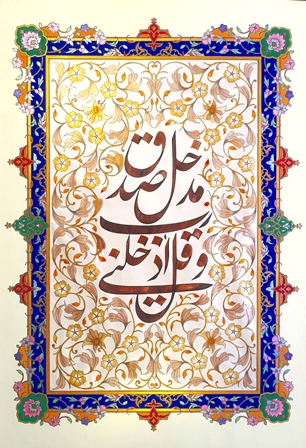 وقل رب ادخلنی
مُدخل صدق